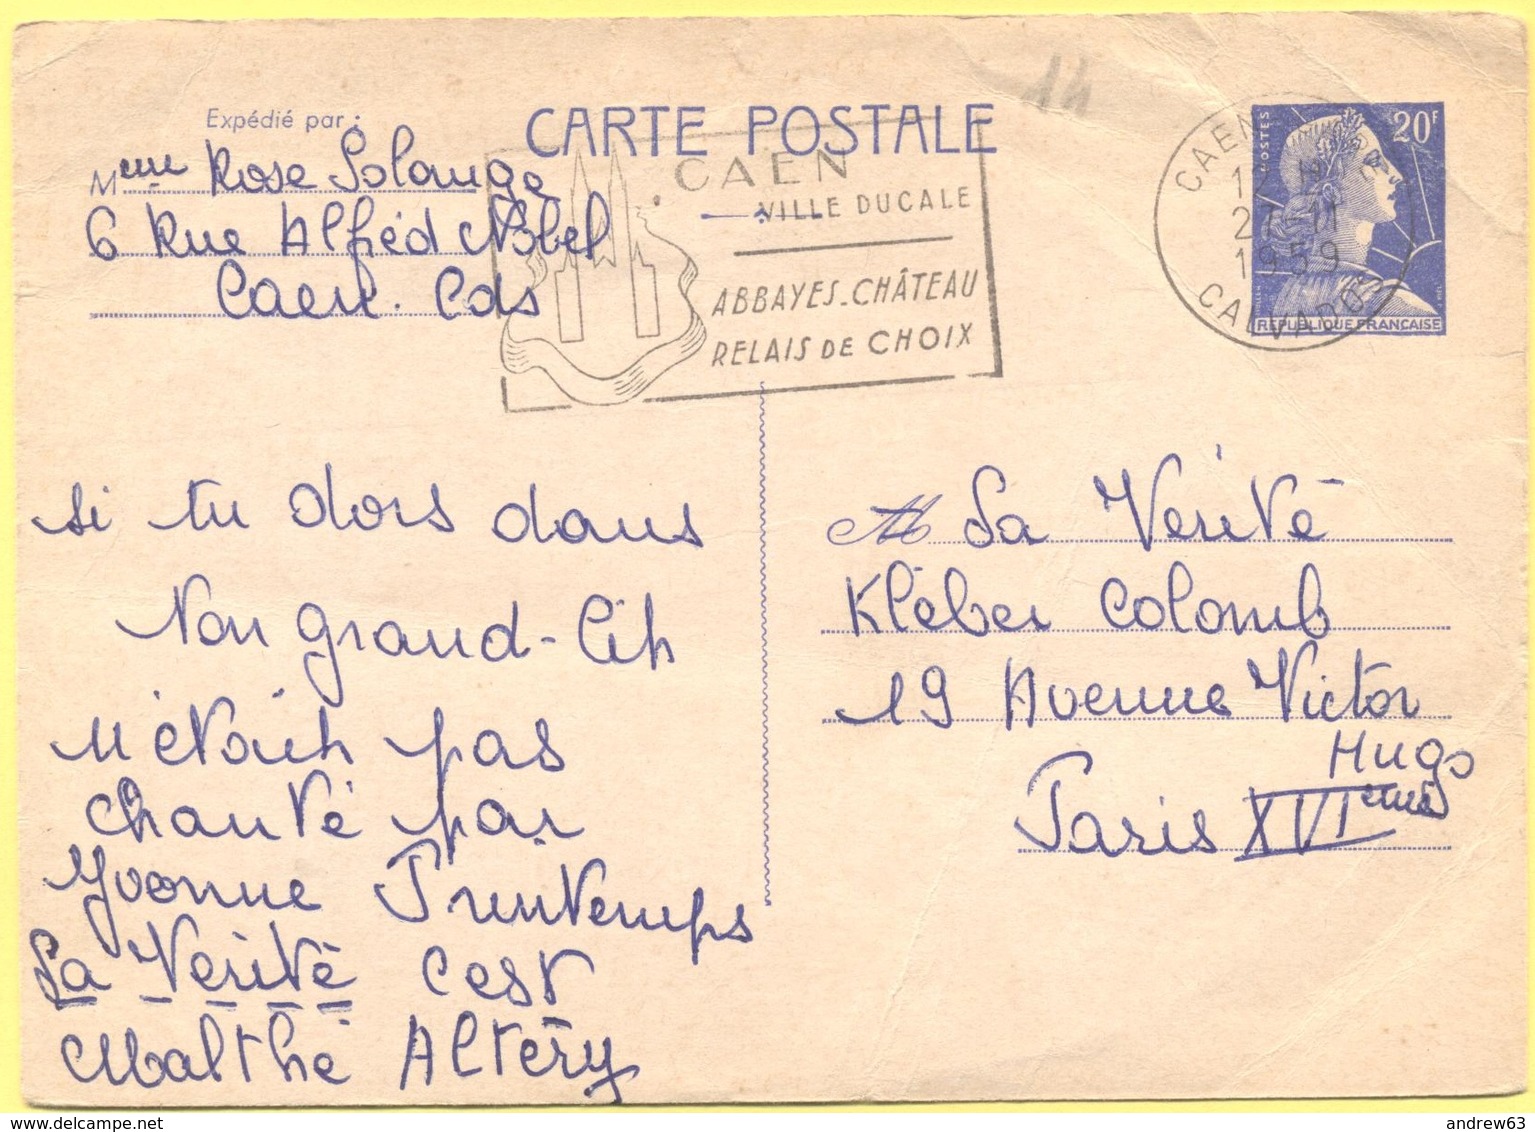 CARTE POSTALE
Expédié par :
Mme Rose Solange
6 Rue Alfred Nobel
Caen. Cds
14
CAEN
VILLE DUCALE
ABBAYES-CHÂTEAU
RELAIS DE CHOIX
CAEN
27-11
1959
CALVADOS
POSTES
20F
REPUBLIQUE FRANCAISE
si tu dors dans
Non grand-lih
N'etaih pas
chanté par
Yvonne Printemps
La Verité cest
Malthé Altéry
M La Verité
Kléber Colomb
19 Avenue Victor
Hugo
Paris XVIeme
andrew63